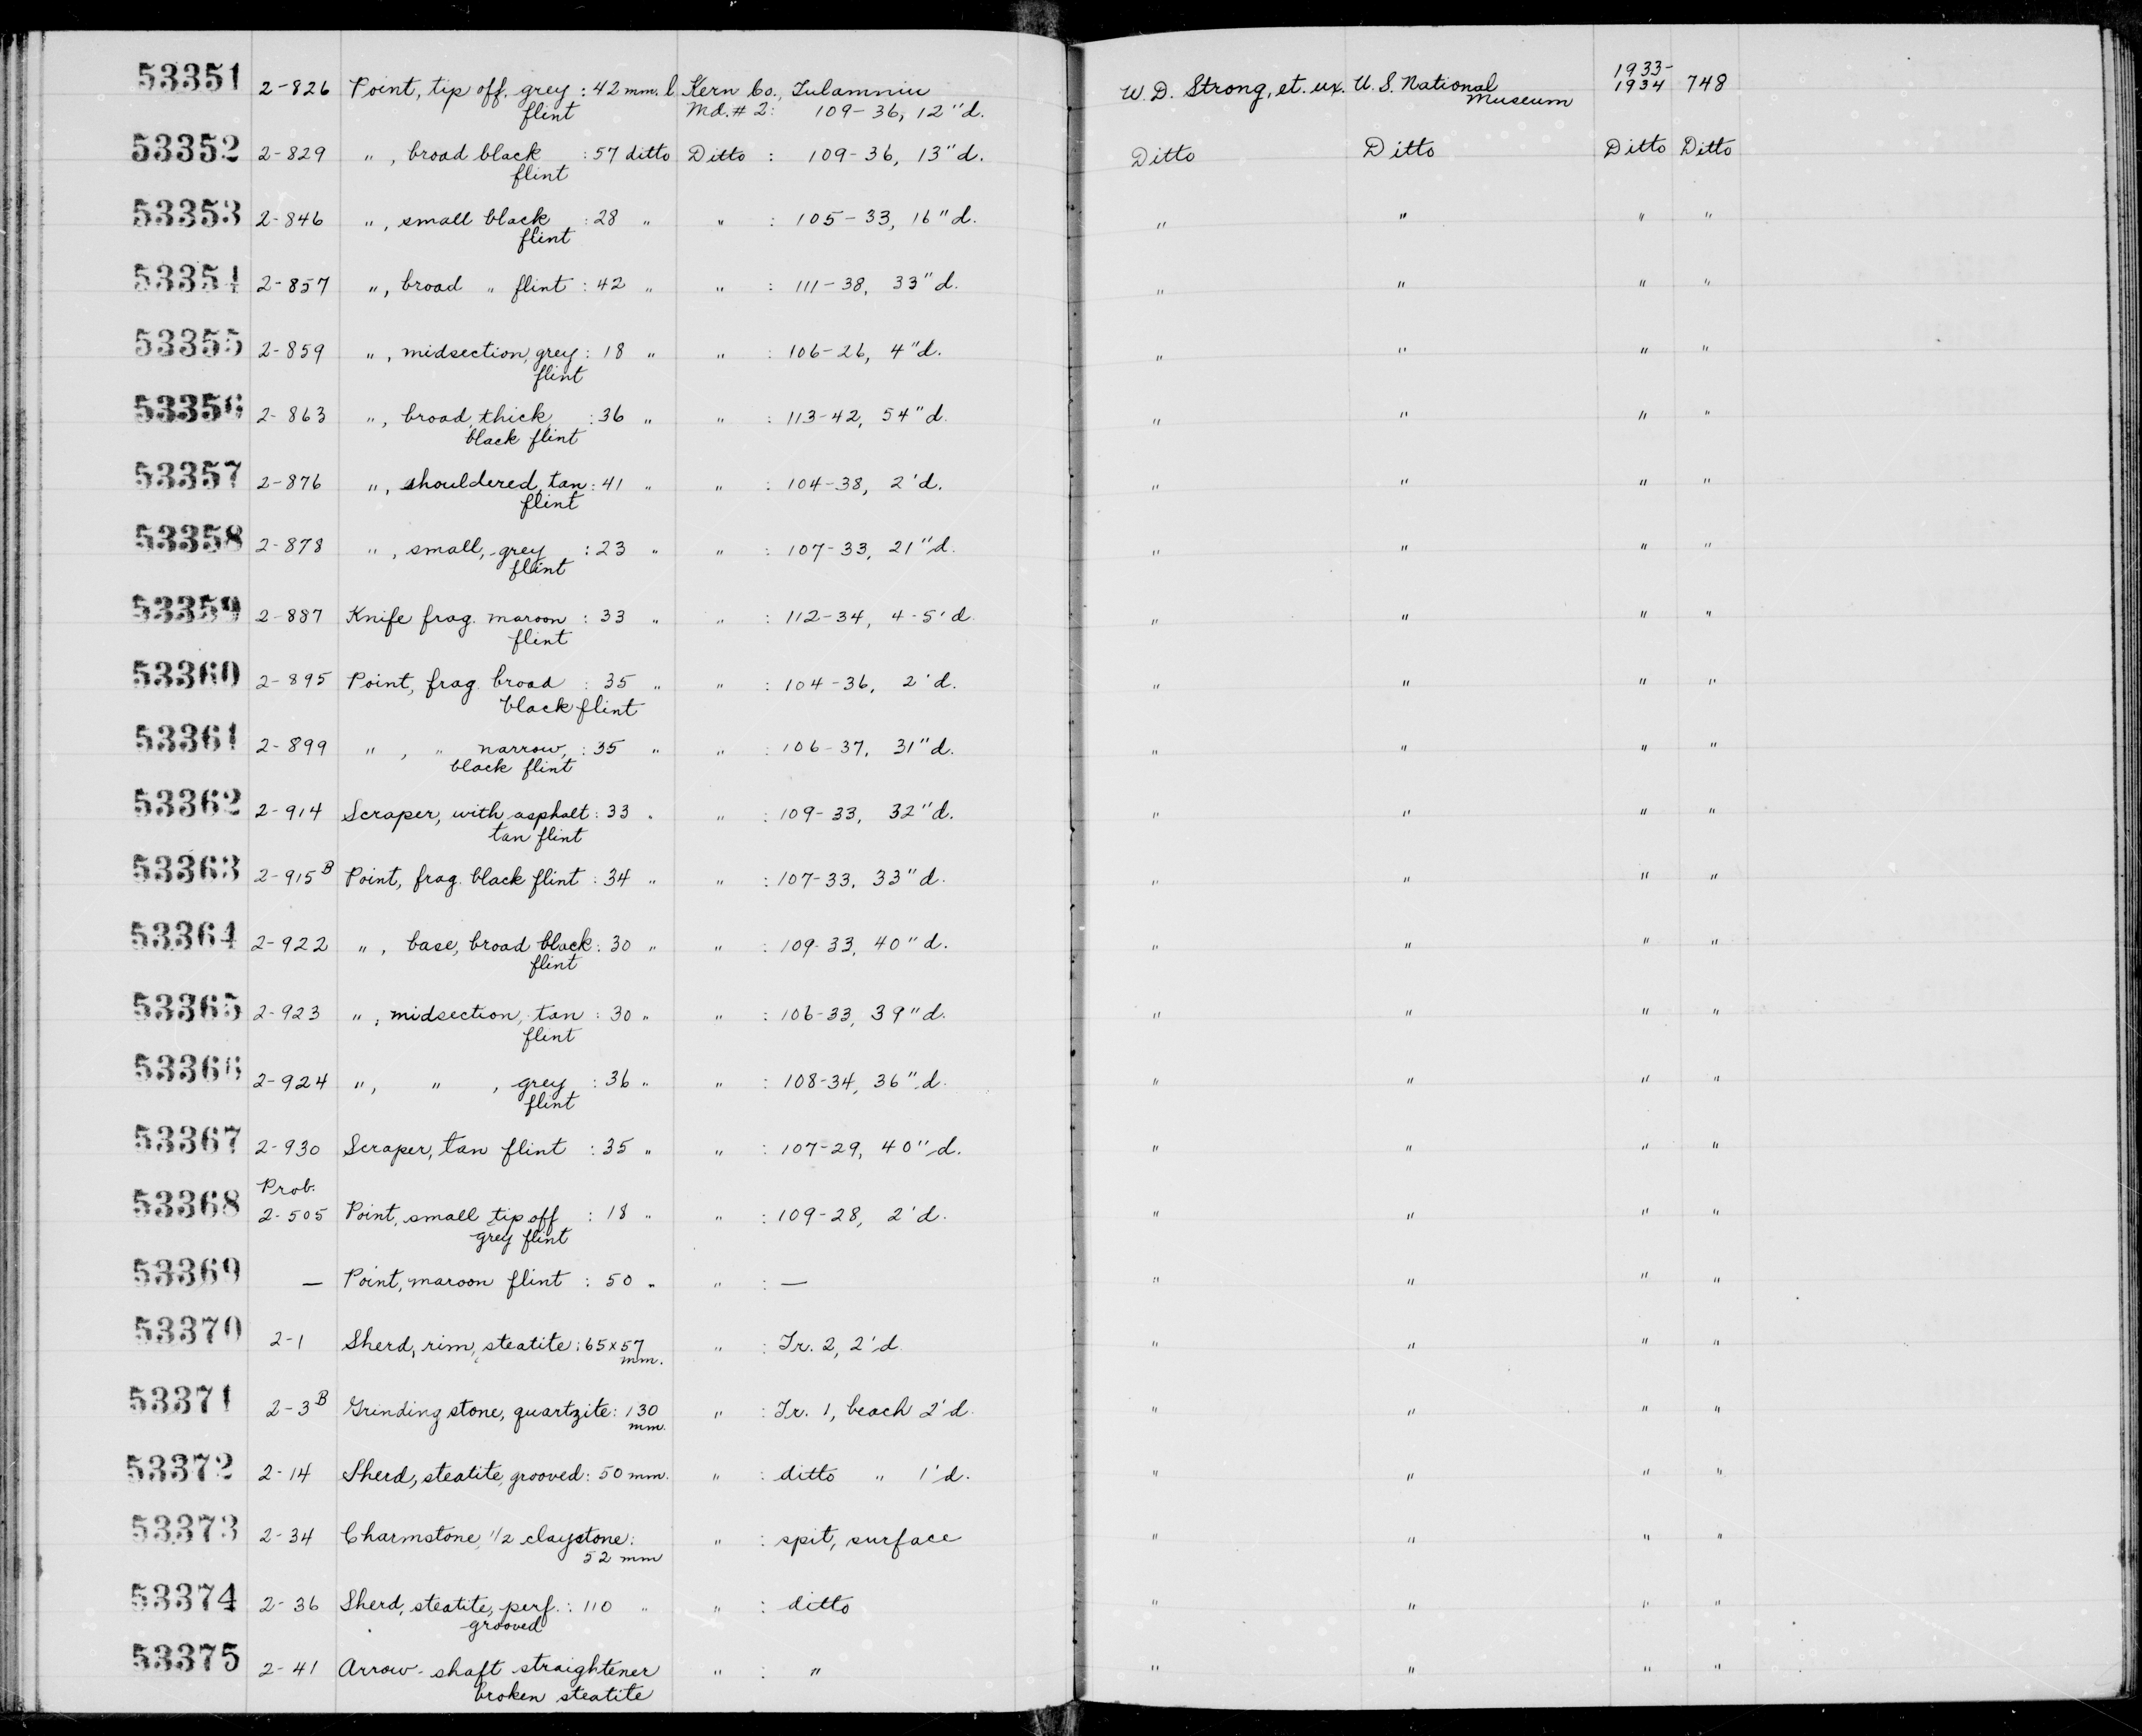 53351 2-826 Point, tip off, grey : 42 mm. l. Kern Co., Tulamniu W. D. Strong, et. ux. U. S. National 1933- 748
flint Md. # 2: 109-36, 12" d. Museum 1934
53352 2-829 " , broad black : 57 ditto Ditto : 109-36, 13" d. Ditto Ditto Ditto Ditto
flint
53353 2-846 " , small black : 28 " " : 105-33, 16" d. " " " "
flint
53354 2-857 " , broad " flint : 42 " " : 111-38, 33" d. " " " "
53355 2-859 " , midsection, grey : 18 " " : 106-26, 4" d. " " " "
flint
53356 2-863 " , broad, thick, : 36 " " : 113-42, 54" d. " " " "
black flint
53357 2-876 " , shouldered, tan : 41 " " : 104-38, 2' d. " " " "
flint
53358 2-878 " , small, grey : 23 " " : 107-33, 21" d. " " " "
flint
53359 2-887 Knife frag. maroon : 33 " " : 112-34, 4-5' d. " " " "
flint
53360 2-895 Point, frag. broad : 35 " " : 104-36, 2' d. " " " "
black flint
53361 2-899 " , " narrow, : 35 " " : 106-37, 31" d. " " " "
black flint
53362 2-914 Scraper, with asphalt : 33 " " : 109-33, 32" d. " " " "
tan flint
53363 2-915 B Point, frag. black flint : 34 " " : 107-33, 33" d. " " " "
53364 2-922 " , base, broad black : 30 " " : 109-33, 40" d. " " " "
flint
53365 2-923 " , midsection, tan : 30 " " : 106-33, 39" d. " " " "
flint
53366 2-924 " , " , grey : 36 " " : 108-34, 36" d. " " " "
flint
53367 2-930 Scraper, tan flint : 35 " " : 107-29, 40" d. " " " "
Prob.
53368 2-505 Point, small tip off : 18 " " : 109-28, 2' d. " " " "
grey flint
53369 — Point, maroon flint : 50 " " : — " " " "
53370 2-1 Sherd, rim, steatite : 65 x 57 " : Tr. 2, 2' d. " " " "
mm.
53371 2-3 B Grinding stone, quartzite : 130 " : Tr. 1, beach 2' d. " " " "
mm.
53372 2-14 Sherd, steatite, grooved : 50 mm. " : ditto " 1' d. " " " "
53373 2-34 Charmstone, 1/2 claystone : " : spit, surface " " " "
52 mm
53374 2-36 Sherd, steatite, perf. : 110 " " : ditto " " " "
grooved
53375 2-41 Arrow-shaft straightener " : " " " " "
broken steatite